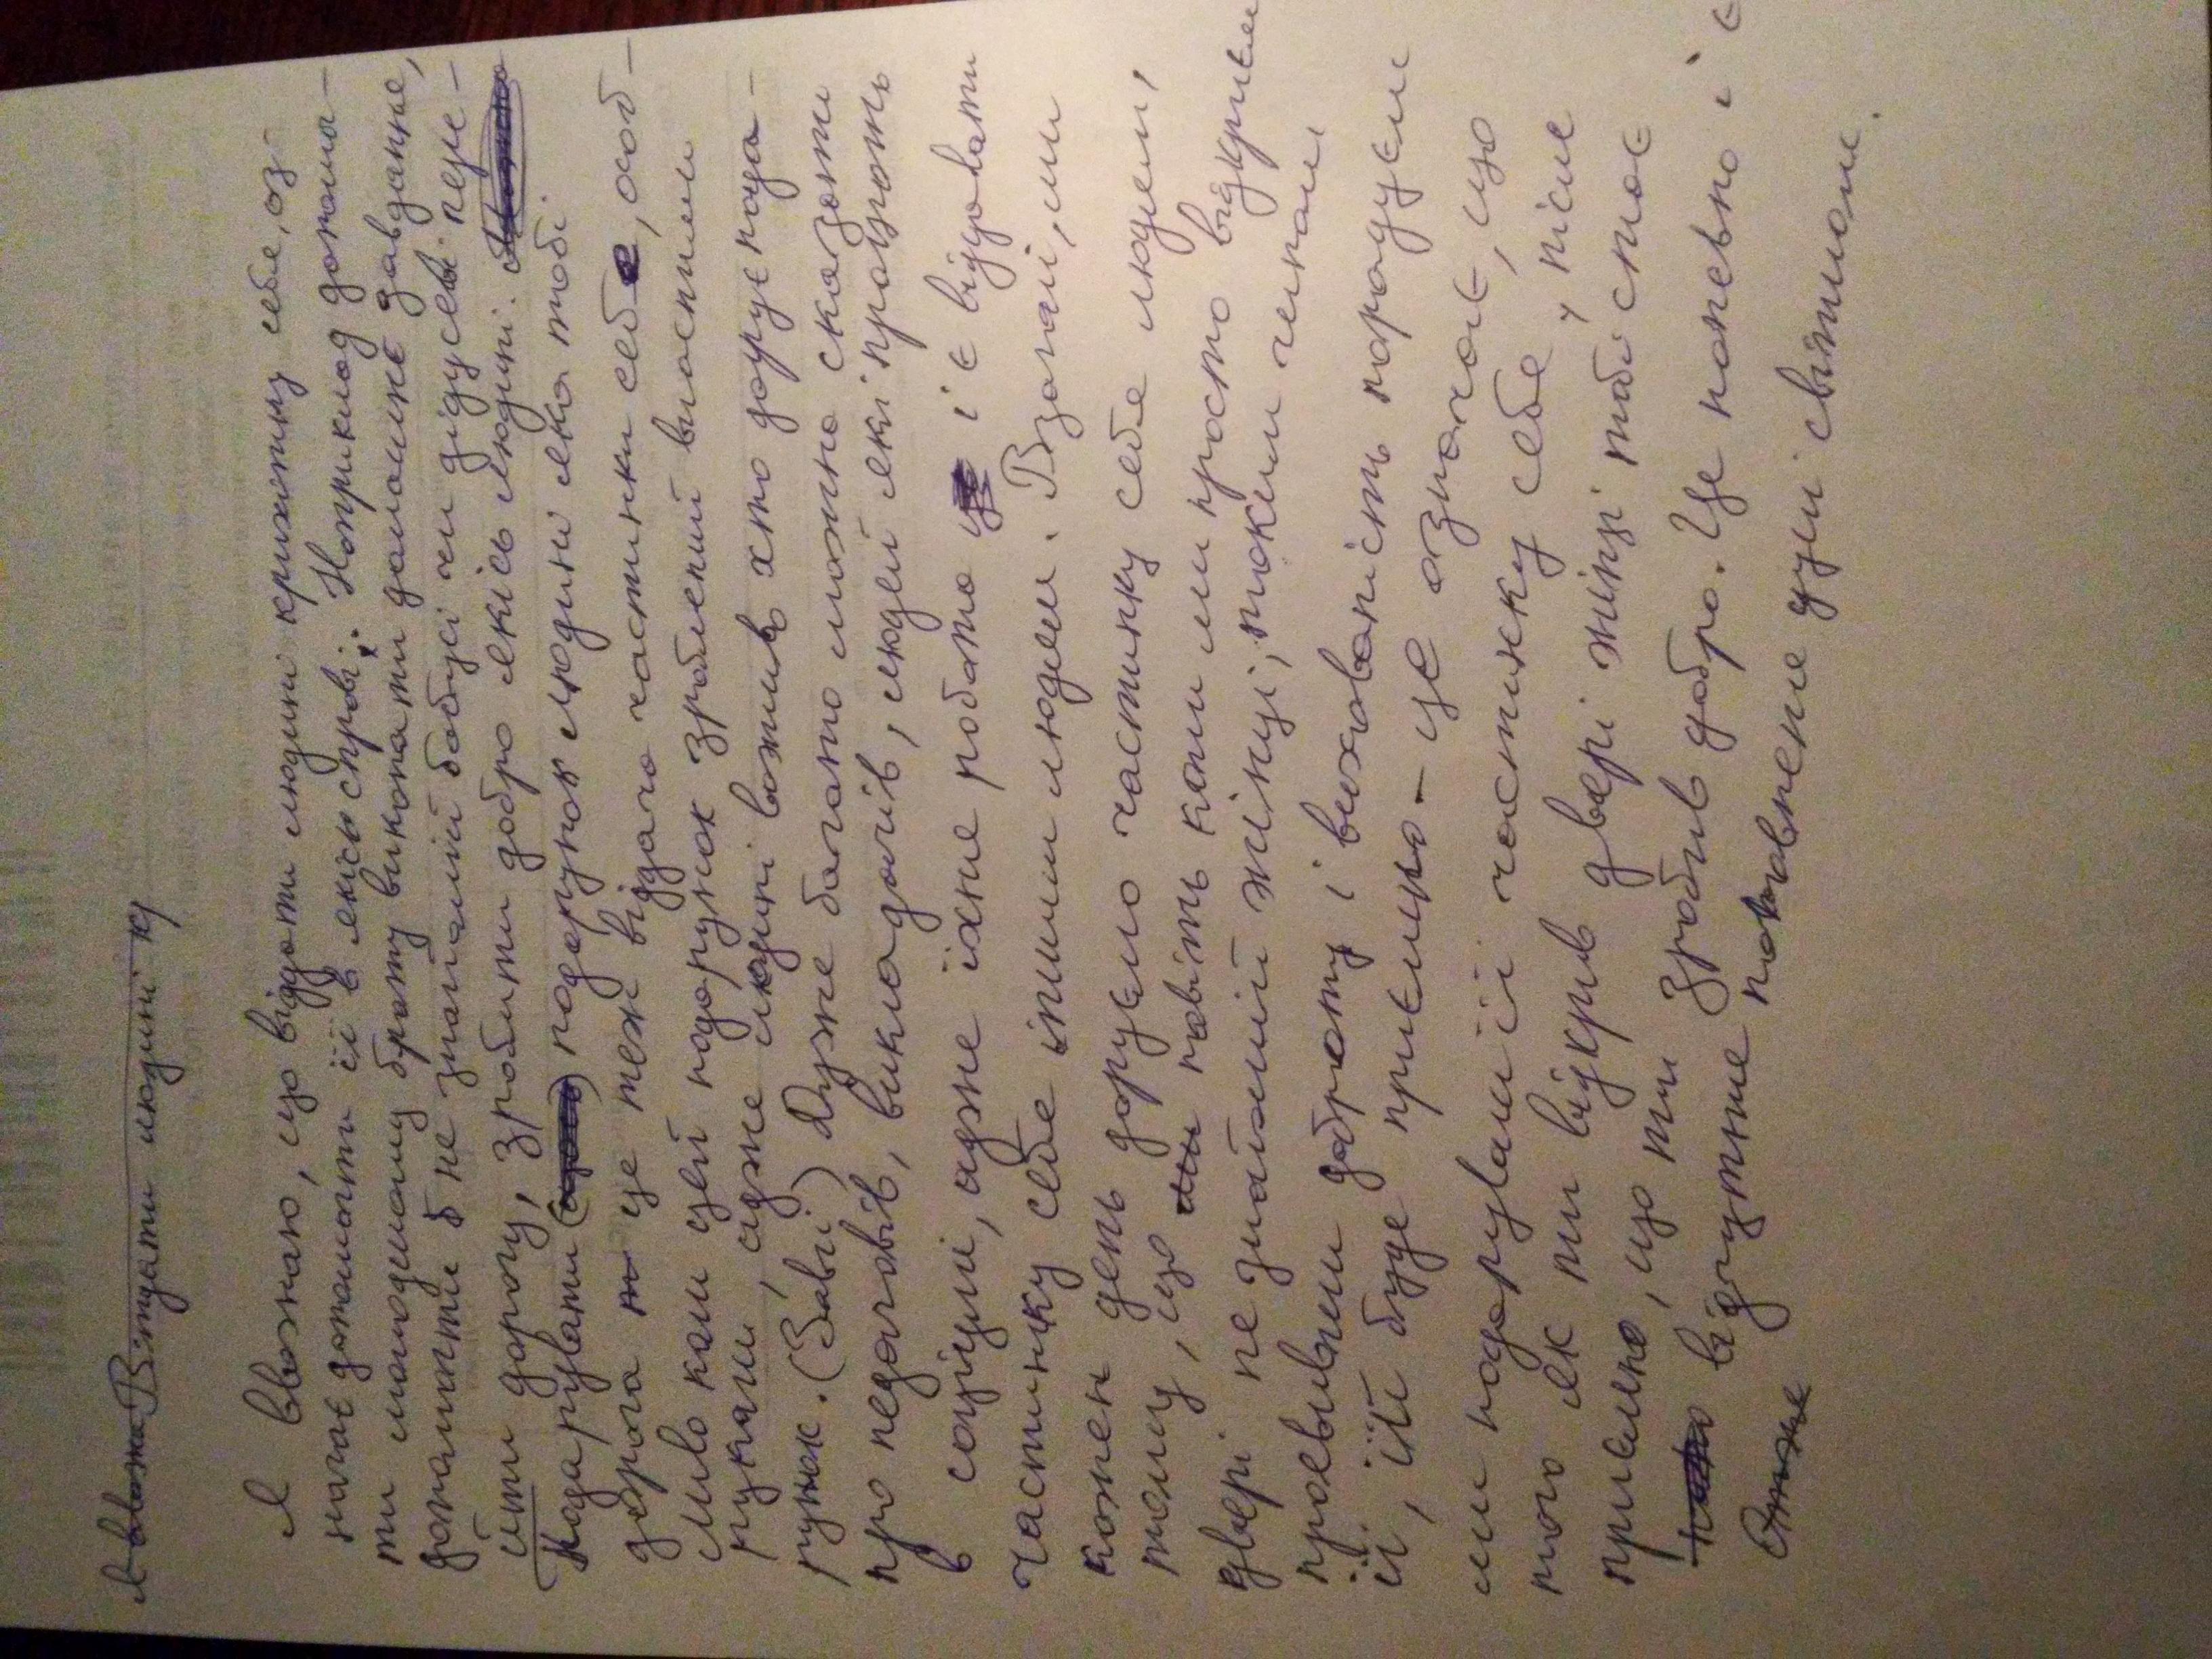 Я вважа Віддати людині кр
Я вважаю, що віддати людині крихітку себе, оз-
начає допомогти їй в якісь справі. Наприклад допомог-
ти молодшому брату виконати домашнє завдання,
допомогти б не знайомій бабусі чи дідусеві пере-
йти дорогу, зробити добро якісь людині.
Подарувати подарунок людині яка тобі
дорога це теж віддача частинки себе, особ-
ливо коли цей подарунок зроблений власними
руками, адже людині важлив хто дарує пода-
рунок. (Завчі) Дуже багато можна сказати
про педагогів, викладачів, людей які працюють
в соціумі, адже їхня робота це і є віддавати
частинку себе іншим людям. Взагалі, ми
кожен день даруємо частинку себе людям,
тому, що ми навіть коли ми просто відкриєм
двері не знайомій жінці, таким чином
проявивши доброту і вихованість порадуєм
її, їй буде приємно - це означає, що
ми подарували її частинку себе, після
того як ти відкрив двері жінці тобі стає
приємно, що ти зробив добро. Це напевно і є
відчуття наповнення душі світлом.
Отже